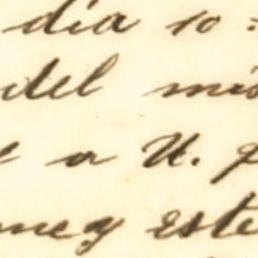 dia 10
del mis
e a U. p
mez este